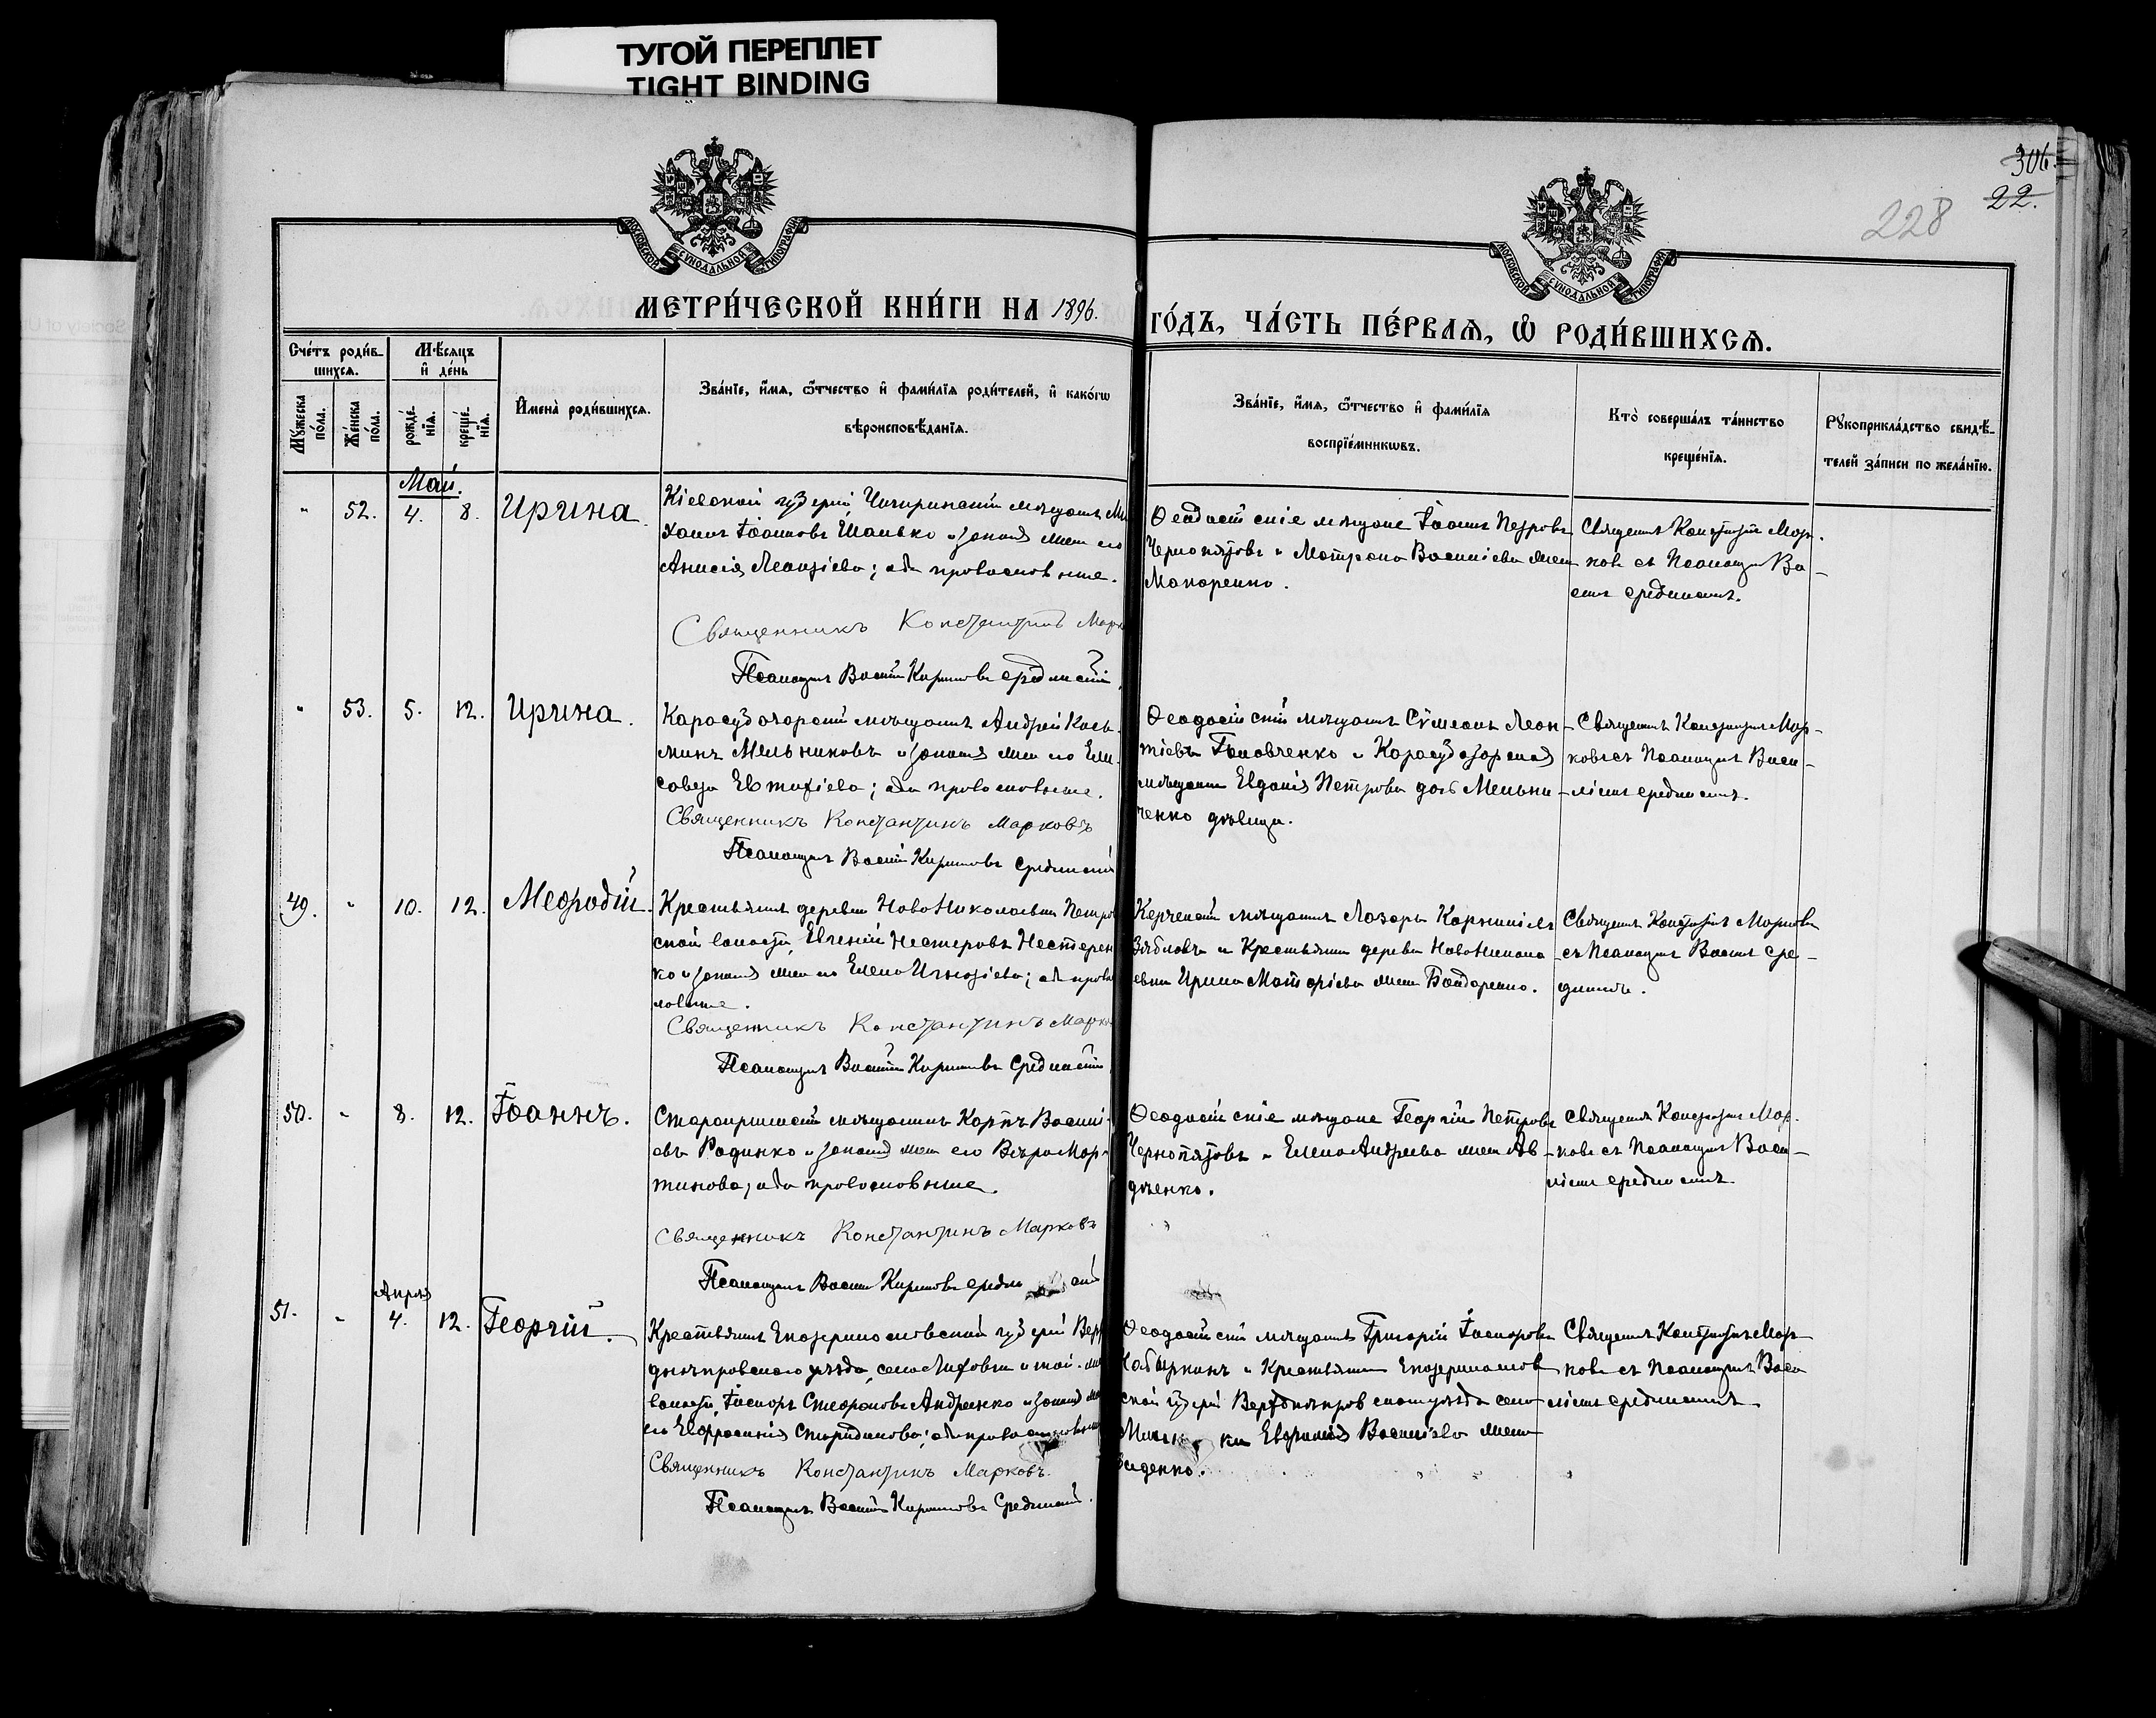 ТУГОЙ ПЕРЕПЛЕТ
TIGHT BINDING
306.
22.
228
МОСКОВСКОЙ СѴНОДАЛЬНОЙ ТИПОГРАФІИ
МОСКОВСКОЙ СѴНОДАЛЬНОЙ ТИПОГРАФІИ
МЕТРИ́ЧЕСКОЙ КНИ́ГИ НА 1896. ГО́ДЪ, ЧА́СТЬ ПЕ́РВАѦ, Ѡ РОДИ́ВШИХСѦ.
Сче́тъ роди́в-
шихсѧ.
Мѣ́сяцъ
и де́нь
Му́жеска
по́ла.
Же́нска
по́ла.
рожде́-
нїѧ.
креще́-
нїѧ.
Имена̀ роди́вшихсѧ.
Зва́нїе, и́мѧ, ѻ́тчество и фами́лїѧ роди́телей, и како́гѡ
вѣроисповѣ́данїѧ.
Зва́нїе, и́мѧ, ѻ́тчество и фами́лїѧ
воспрїе́мникѡвъ.
Кто̀ соверша́лъ та́инство
креще́нїѧ.
Рукоприкла́дство свидѣ́-
телей за́писи по жела́нїю.
Май.
" 52. 4. 8. Ирина.
Кіевской губерніи, Чигиринскій мѣщанинъ Ми
хаилъ Іоанновъ Шанько и законная жена его
Анисія Леонтіева; оба православные.
Священникъ Константинъ Марко
Псаломщикъ Василій Кирилловъ Срединскій
Ѳеодосійскіе мѣщане Іоаннъ Петровъ
Чернопятовъ и Матрона Василіева жена
Макаренко.
Священникъ Константинъ Мар-
ковъ съ Псаломщикомъ Ва-
Срединскимъ.
" 53. 5. 12. Ирина.
Карасубазарскій мѣщанинъ Андрей Кось-
минъ Мельниковъ и законная жена его Ели-
савета Евтихіева; оба православные.
Священникъ Константинъ Марковъ
Псаломщикъ Василій Кирилловъ Срединскій
Ѳеодосійскій мѣщанинъ Сѵмеонъ Леон-
тіевъ Головченко и Карасубазарская
мѣщанка Евдокія Петрова дочь Мельни-
ченко дѣвица.
Священникъ Константинъ Мар-
ковъ съ Псаломщикомъ Васи-
ліемъ Срединскимъ.
49. " 10. 12. Меѳодій.
Крестьянинъ деревни Ново Николаевки Петров
ской волости, Евгеній Нестеровъ Нестерен
ко и законная жена его Елена Игнатіева; оба право
славные.
Священникъ Константинъ Марко
Псаломщикъ Василій Кирилловъ Срединскій
Керченскій мѣщанинъ Лазарь Корниліевъ
Зябловъ и Крестьянка деревни Ново Никола
евки Ирина жена Бондаренко.
Священникъ Константинъ Марковъ
съ Псаломщикомъ Василіемъ Сре-
динскимъ.
50. " 8. 12. Іоаннъ.
Старокрымскій мѣщанинъ Карпъ Василі-
евъ Радинко и законная жена его Вѣра Мар-
тинова; оба православные.
Священникъ Константинъ Марковъ
Псаломщикъ Василій Кирилловъ Срединскій
Ѳеодосійскіе мѣщане Георгій Петровъ
Чернопятовъ и Елена Андреева жена Ав-
дѣенко.
Священникъ Константинъ Мар-
ковъ съ Псаломщикомъ Васи-
ліемъ Срединскимъ
Апрѣля
51. " 4. 12. Георгій.
Крестьянинъ Екатеринославской губерніи Верх
днѣпровскаго уѣзда, села Лиховки и той-же
волости, Стефановъ Андреенко и законная жена
его Евфросинія Спиридонова; оба православные
Священникъ Константинъ Марковъ.
Псаломщикъ Василій Кирилловъ Срединскій.
Ѳеодосійскій мѣщанинъ Григорій
и Крестьянка Екатеринослав
ской губерніи Верхднѣпровскаго уѣзда села
Евфимія Василіева жена
Священникъ Константинъ Мар-
ковъ съ Псаломщикомъ Васи
ліемъ Срединскимъ.